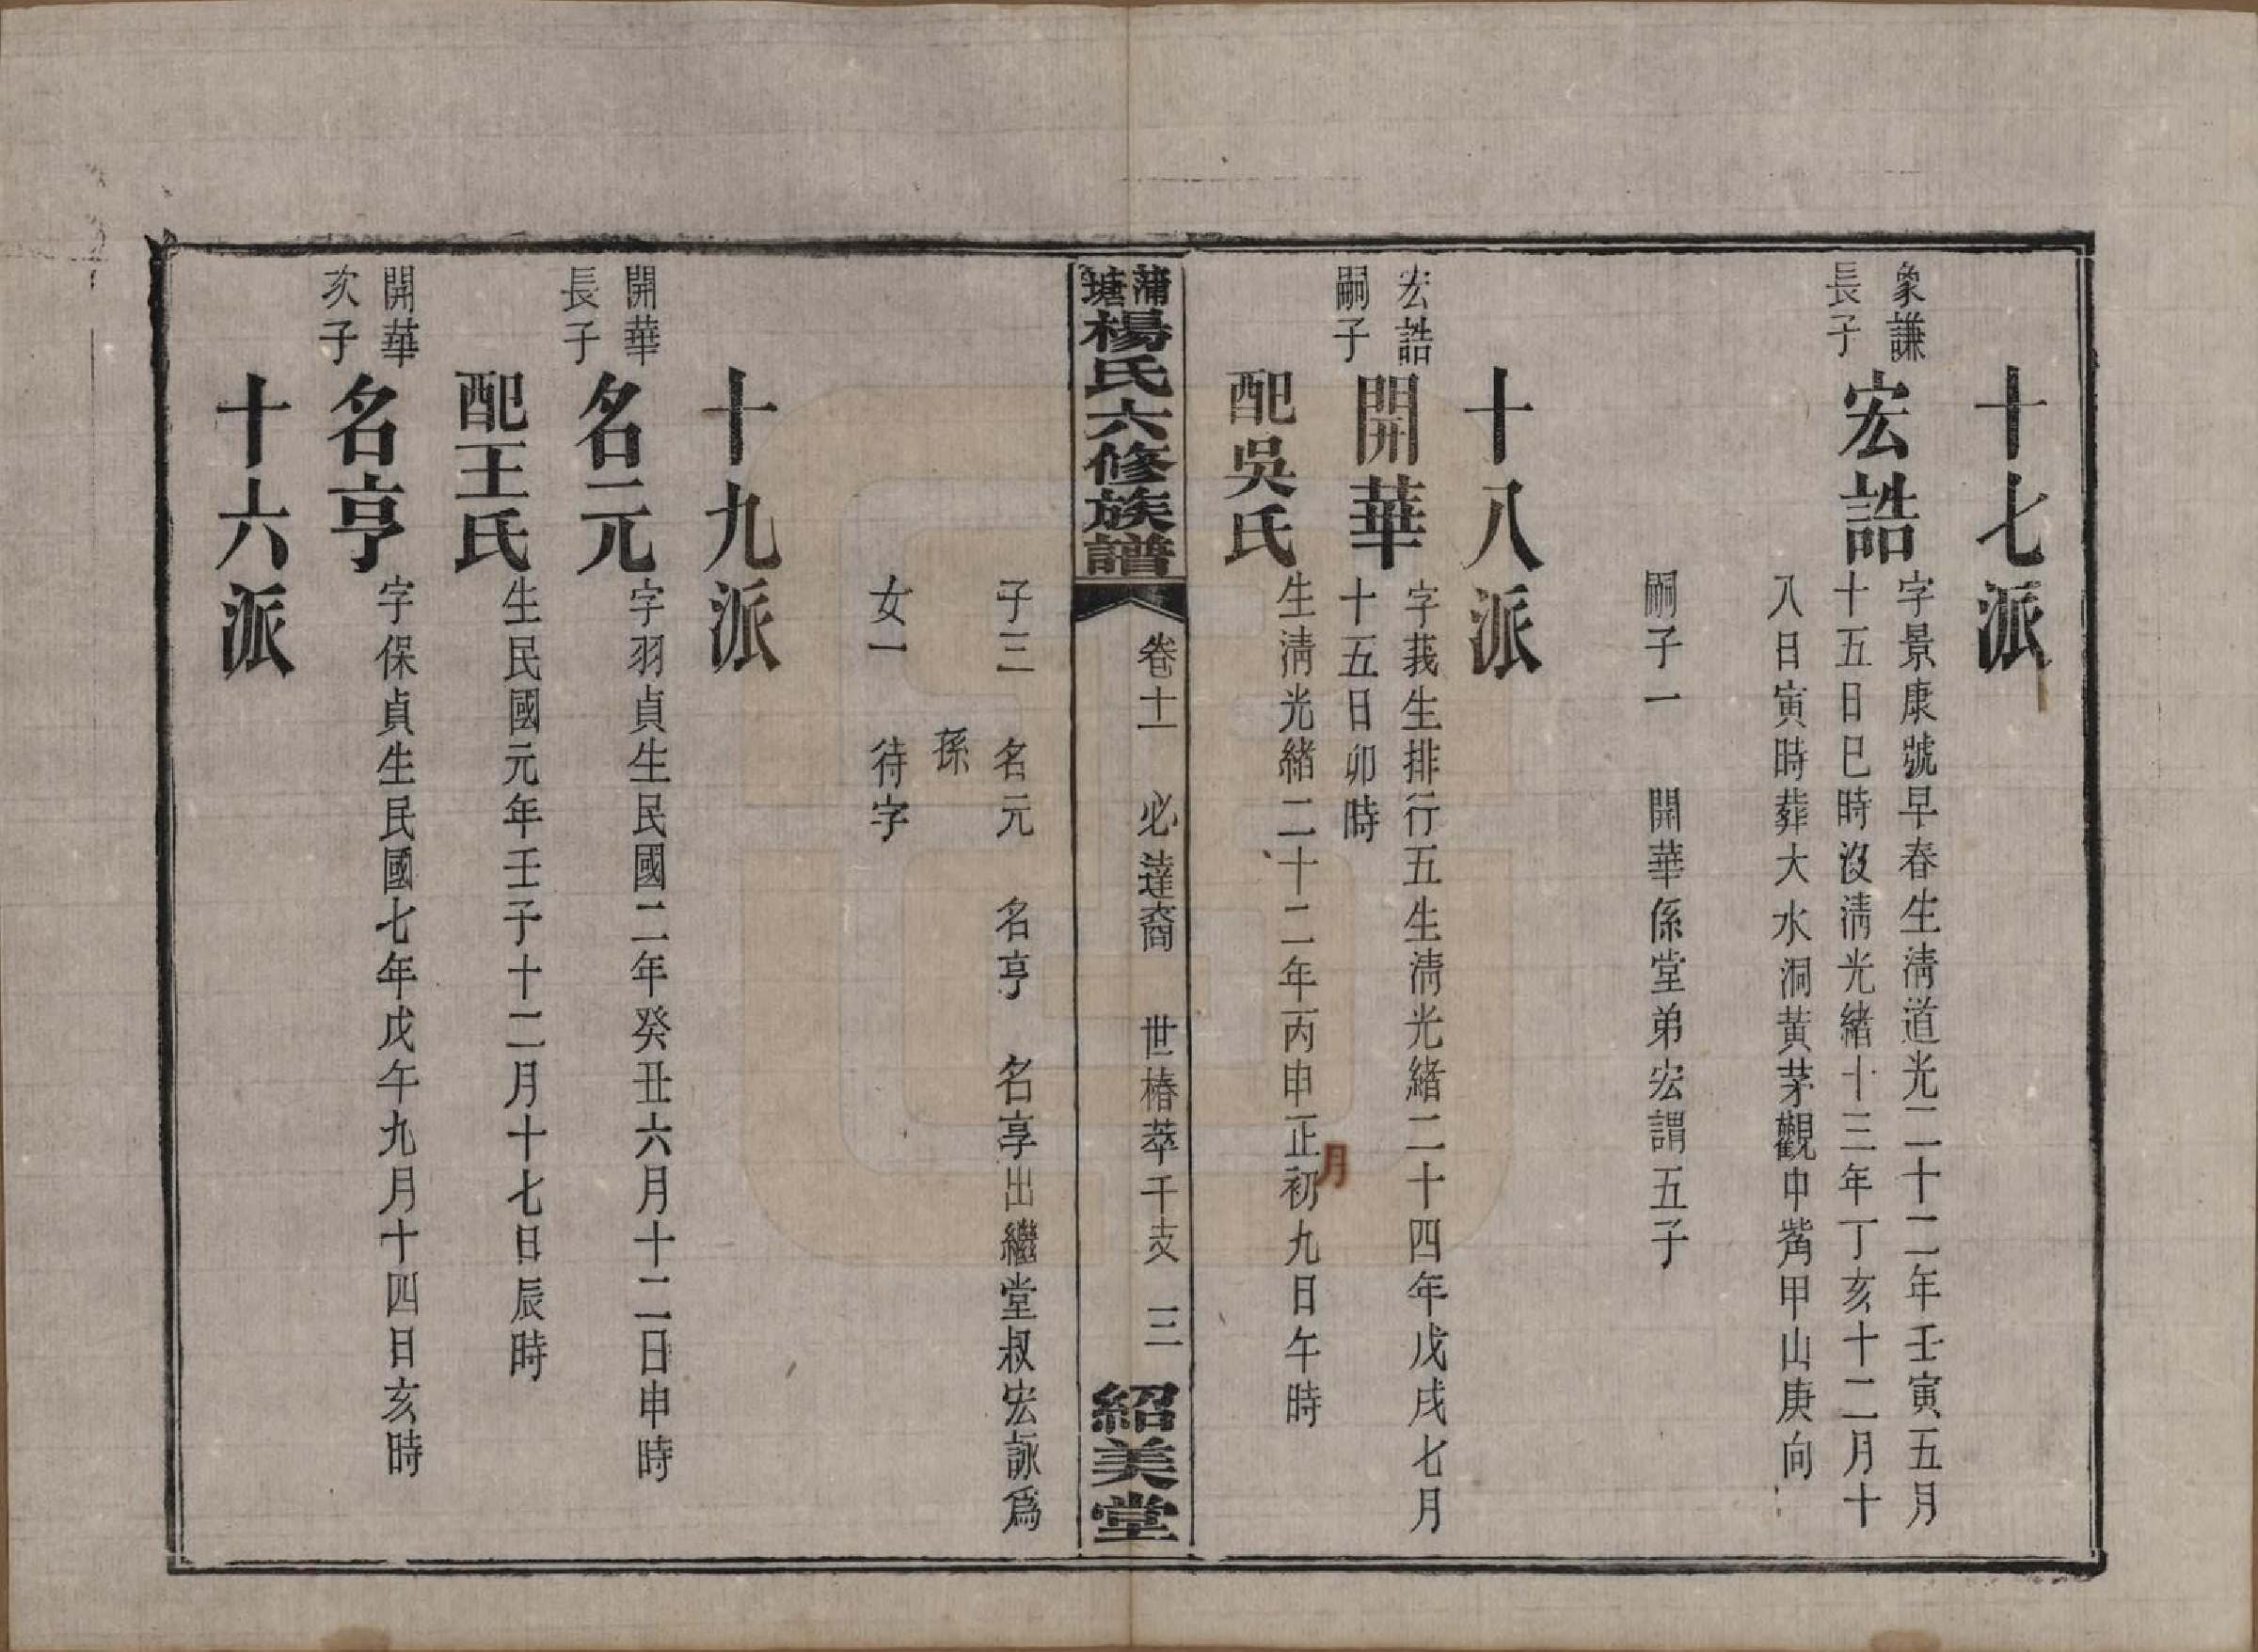 十七派
象謙
長子
宏誥
字景康號早春生淸道光二十二年壬寅五月
十五日巳時沒淸光緒十三年丁亥十二月十
八日寅時葬大水洞黃茅觀申觜甲山庚向
嗣子一 開華係堂弟宏謂五子
十八派
宏誥
嗣子
開華
字莪生排行五生淸光緒二十四年戊戌七月
十五日卯時
配吳氏
生淸光緒二十二年丙申正月初九日午時
蒲塘楊氏六修族譜
卷十一 必達裔 世椿萃千支 三
紹美堂
子三 名元 名亨 名享出繼堂叔宏詠爲
孫
女一 待字
十九派
開華
長子
名元
字羽貞生民國二年癸丑六月十二日申時
配王氏
生民國元年壬子十二月十七日辰時
開華
次子
名亨
字保貞生民國七年戊午九月十四日亥時
十六派